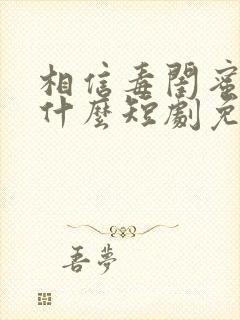 相信毒閨蜜
什麼短劇免
吾夢